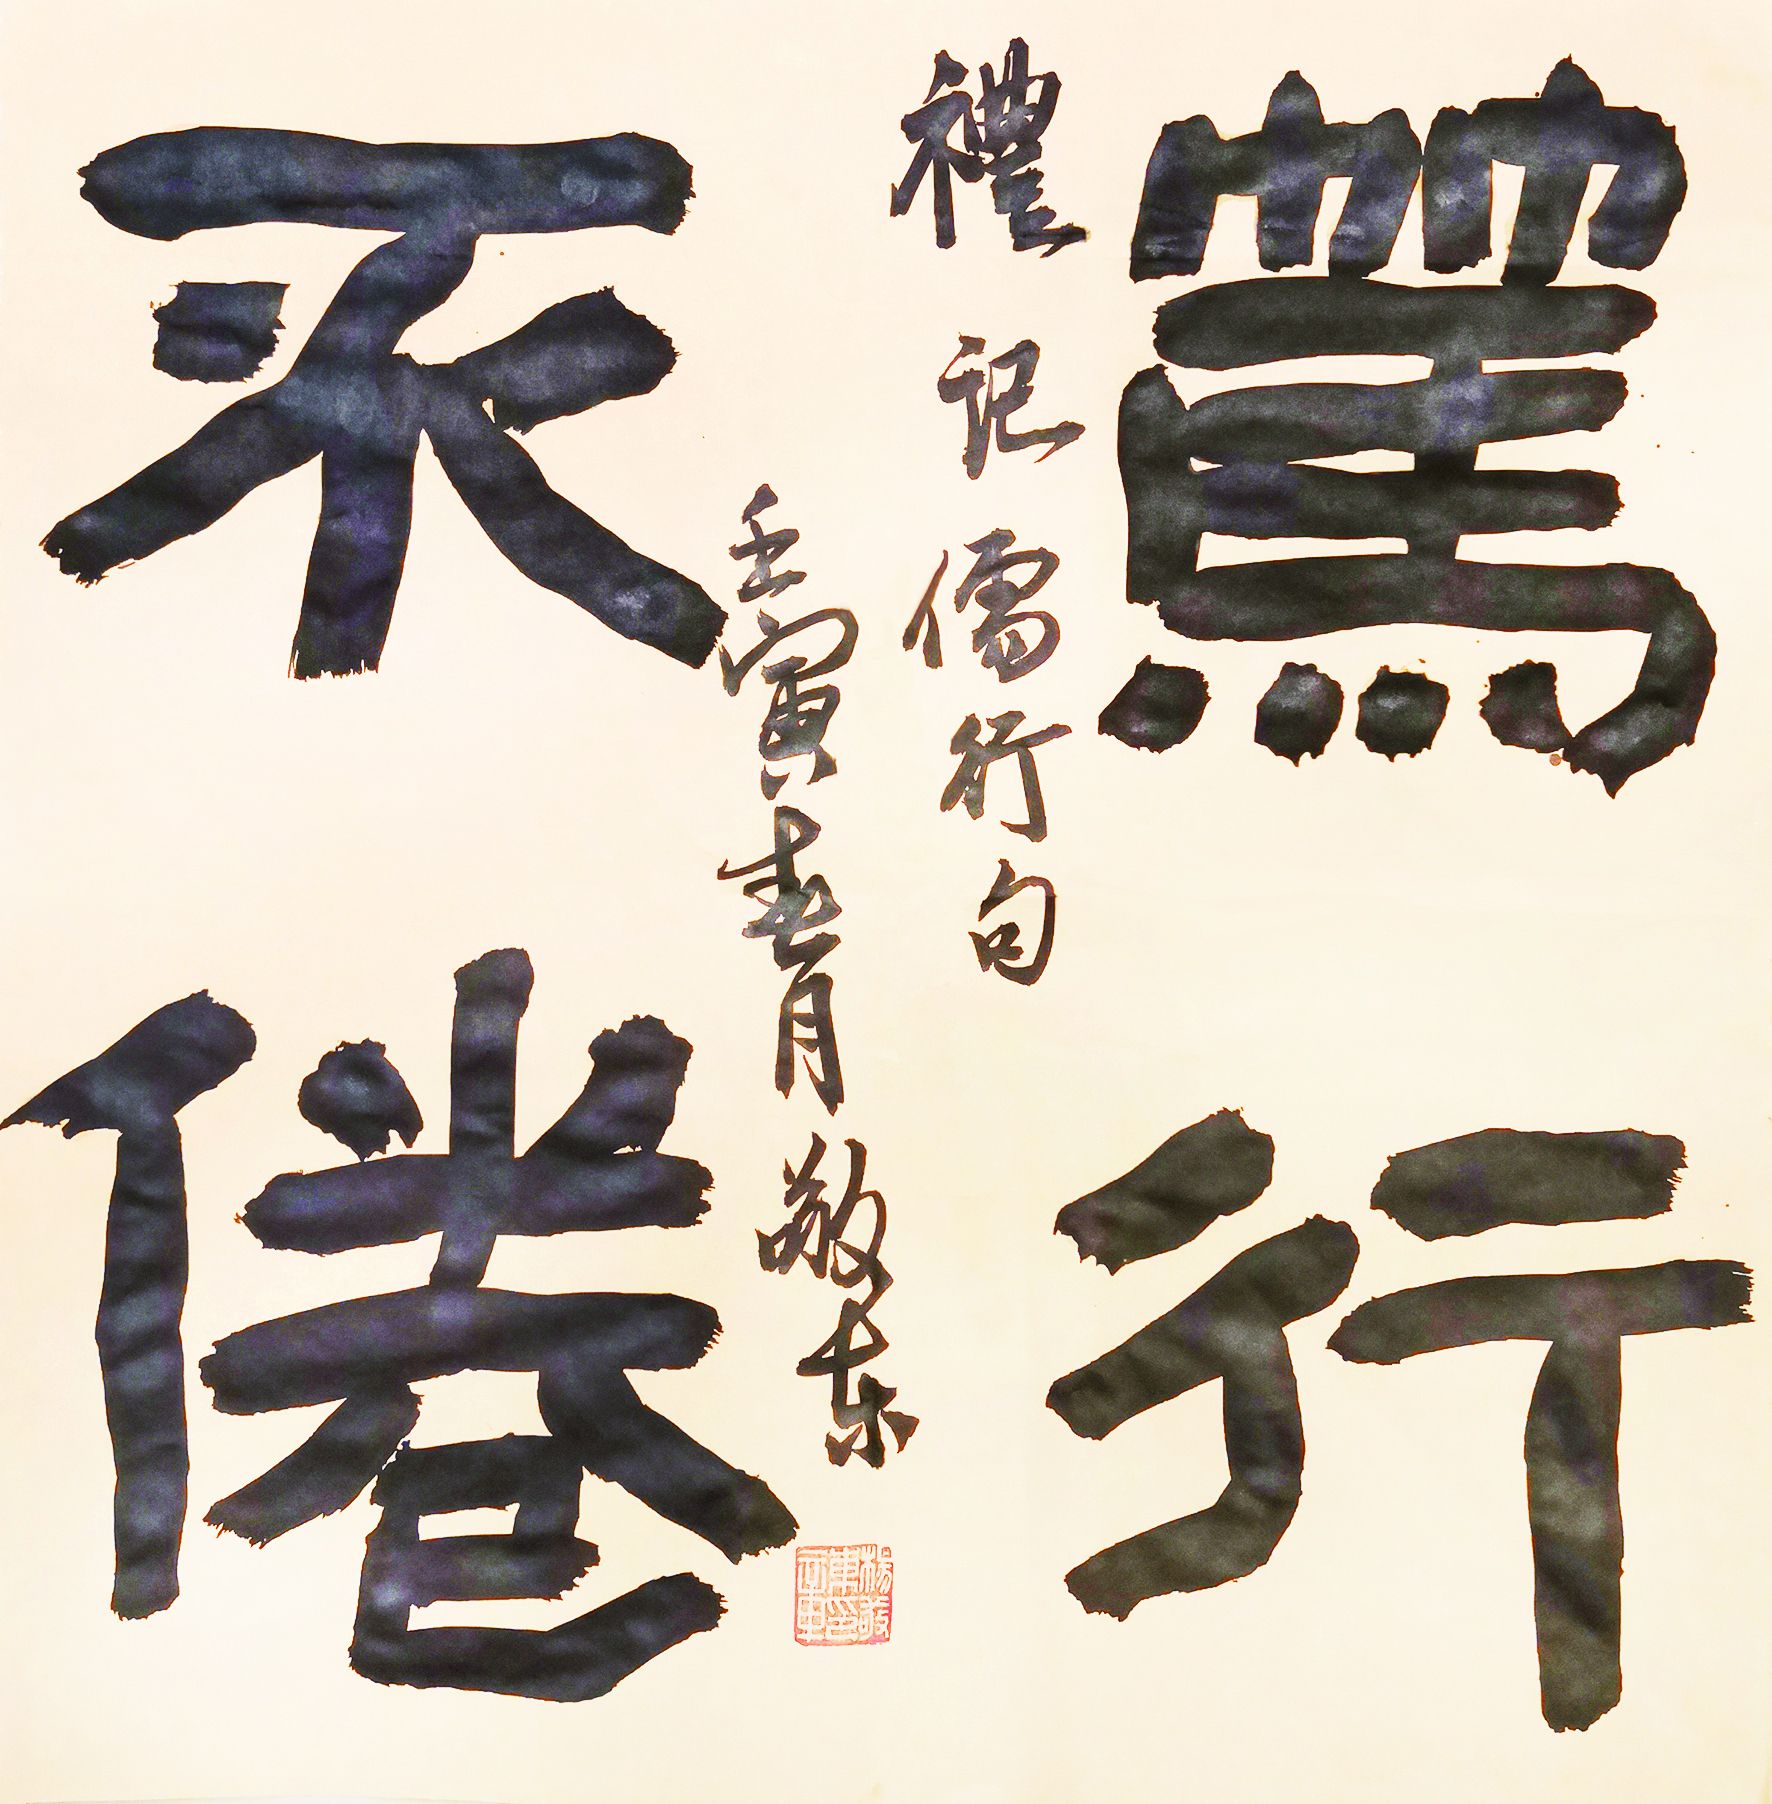 篤行
不倦
禮记儒行句
壬寅春月敬东